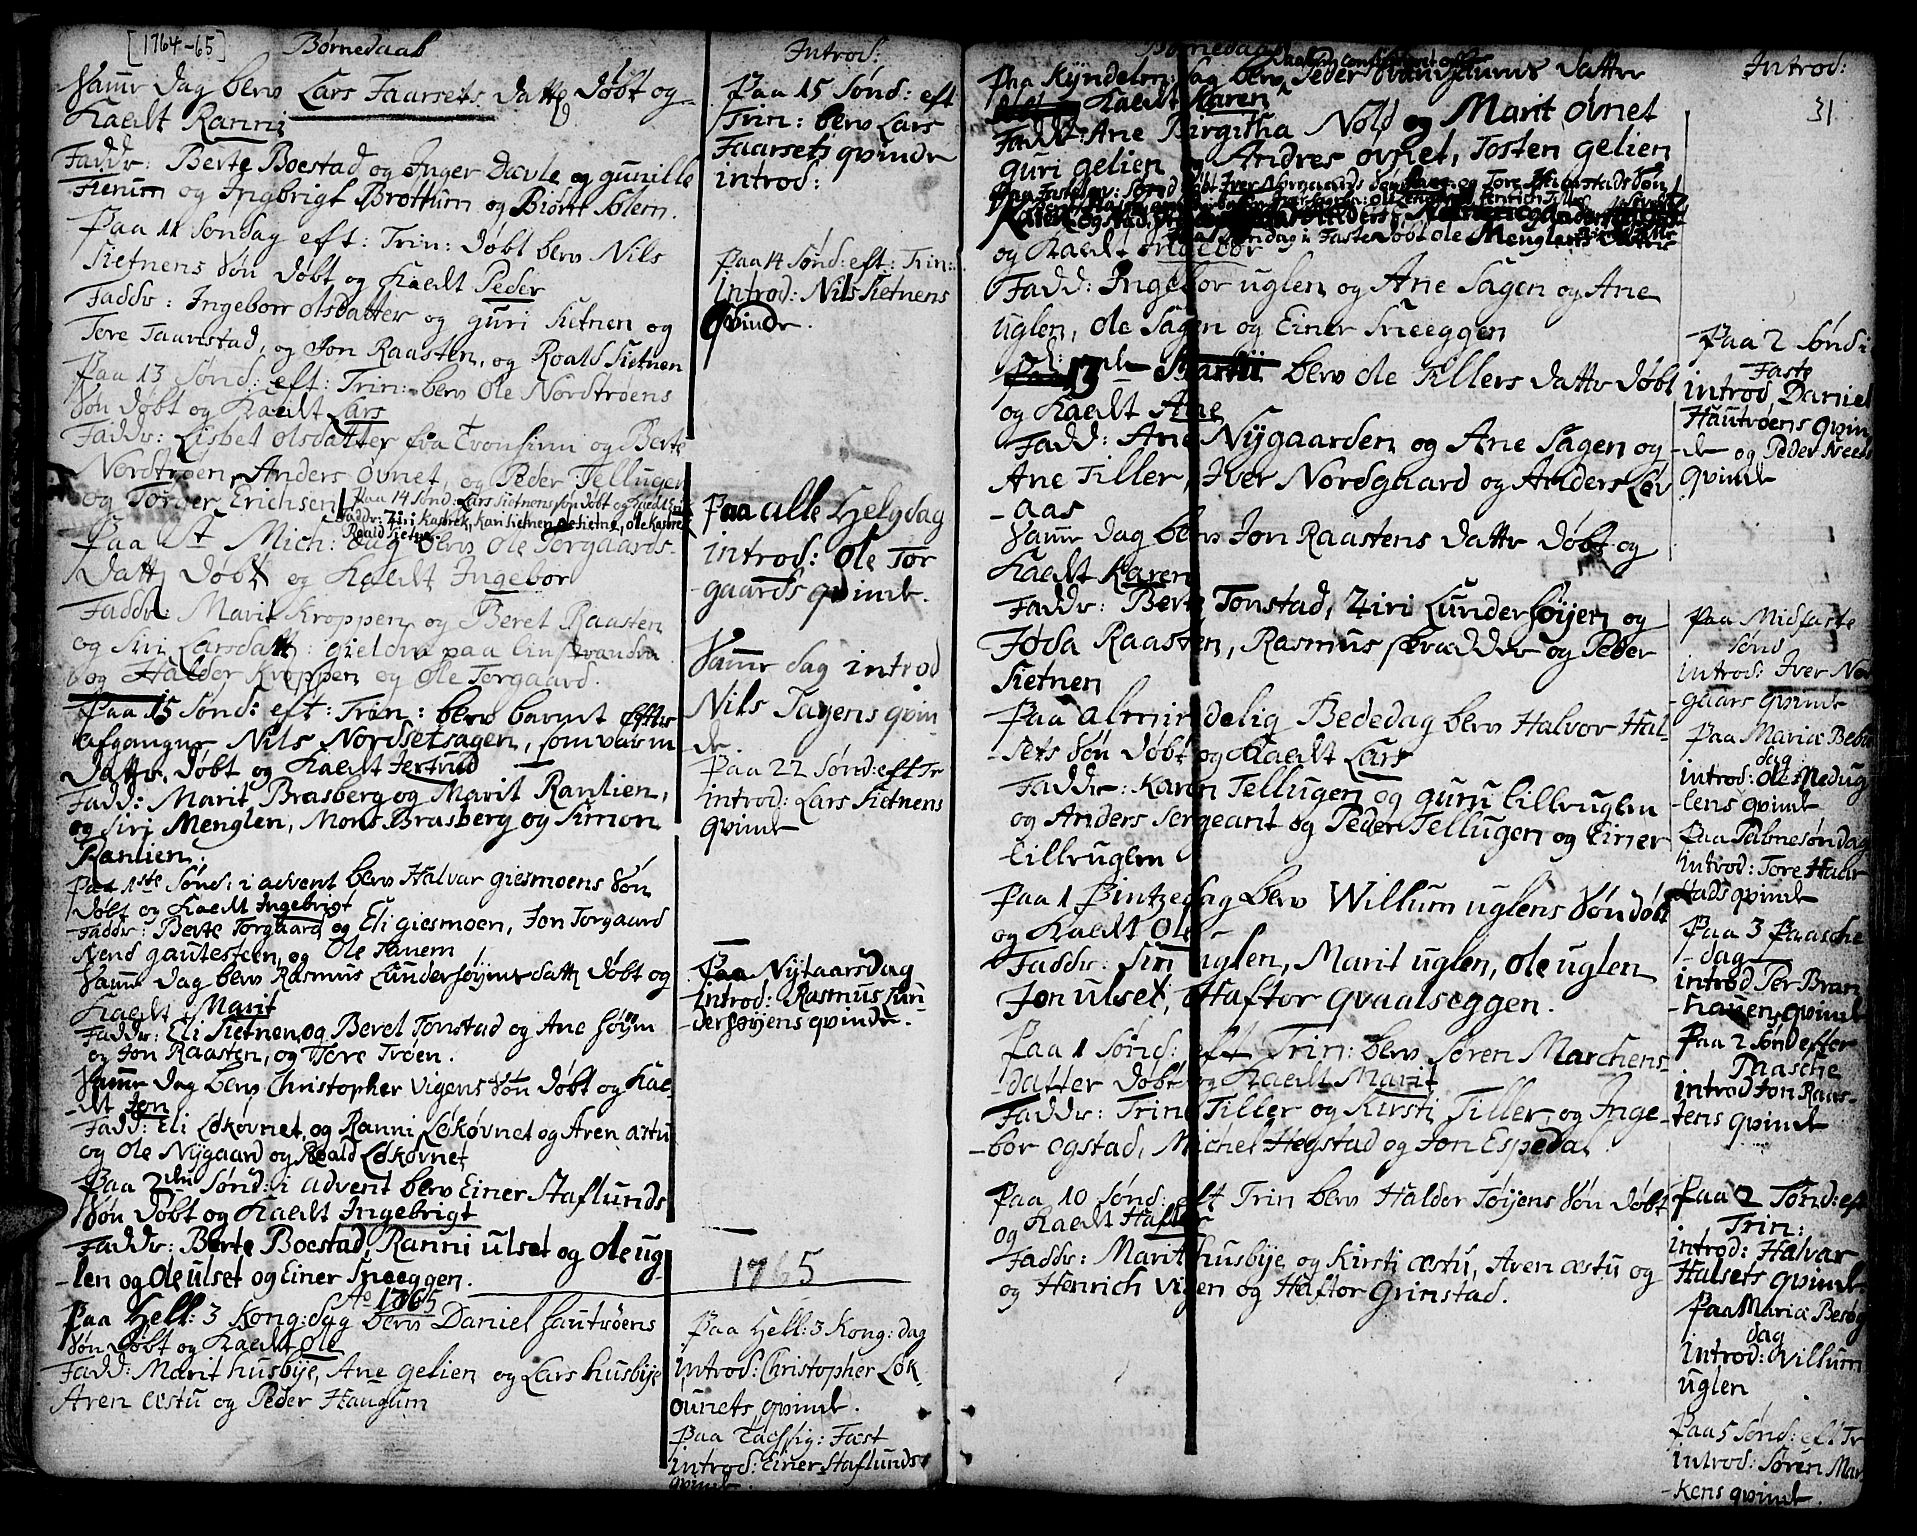 [1764-65]
Børnedaab
Samme dag blev Lars Faarsets datter døbt og
kaldt Ranni
Faddr: Berte Boestad og Inger Davle og gunille
Tierum og Ingbrigt Brøttum og Biørn Solem.
Paa 11 Søndag eft: Trin: døbt blev Nils
Sietnens Søn døbt og kaldt Peder
Faddr: Ingeborr olsdatter og guri Sietnen og
Tore Taarnstad, og Jon Raasten, og Roald Sietnen
Paa 13 Sønd: eft: Trin: blev Ole Nordtrøens
Søn døbt og kaldt Lars
Faddr: Lisbet olsdatter fra Tronsinn og Berte
Nordtrøen, Anders Øvnet, og Peder Tellugen
og Torger Erichsen
Paa 14 Sønd: Lars Sietnens søn døbt og
Faddr: Ziri kasrek, kari Sietnen, ole
Roald Sietnen
Paa St Mich: dag blev Ole Torgaards
datter døbt og kaldt Ingebor
Faddr: Marit Kroppen og Beret Raasten
og Siri Larsdatt:
og Haldor Kroppen og Ole Torgaard.
Paa 15 Sønd: eft: Trin: blev barnet efter
afgangne Nils Nordsetsagen, som var en
datter, døbt og kaldt Jertrud
Fadd: Marit Brasberg og Marit Ranlien,
og Siri Menglen, Mons Brasberg og Simon
Ranlien.
Paa 1ste Sønd: i advent blev Halvar giesmoens Søn
døbt og kaldt Ingebrigt
Faddr: Berte Torgaard og Eli giesmoen, Jon Torgaard
Nend gautesteen og Ole Tanem
Samme dag blev Rasmus Lundersøyens datter døbt og
kaldt Marit
Faddr: Eli Sietnen og Beret Tonstad og Ane Søyen
og Jon Raasten, og Tore Trøen.
Samme dag blev Christopher Vigens Søn døbt og kal-
-dt Jon
Fadd: Eli Løkøvnet, og Ranni Løkøvnet og Aren æstu
og Ole Nygaard og Roald Løkøvnet
Paa 2den Sønd: i advent blev Einer Staflunds
Søn døbt og kaldt Ingebrigt
Faddr: Berte Boestad, Ranni ulset og Ole ug-
-len og Ole ulset og Einer Sneeggen.
Ao 1765
Paa Hell: 3 Kong: dag blev Daniel Hautrøens
Søn døbt og kaldt Ole
Fadd: Marit husbye, Ane gelien og Lars husbye
Aren æstu og Peder Haugum
Introd:
Paa 15 Sønd: eft
Trin: blev Lars
Faarsets qvinde
introd:
Paa 14 Sønd: eft: Trin:
introd: Nils Sietnens
qvinde.
Paa alle Helgdag
introd: Ole Tor
-gaards qvinde.
Samme dag introd
Nils Tayens qvin
de.
Paa 22 Sønd: eft Tr
introd: Lars Sietnens
qvinde
Paa Nytaarsdag
introd: Rasmus Lun
-dersøyens qvinde.
1765
Paa Hell: 3 Kong: dag
introd: Christopher Løk
øvnets qvinde.
Paa Fast
introd: Einer Staflunds
qvinde.
Børnedaab
Paa Kyndelm: dag blev Peder datter
kaldt Karen
Faddr: Ane Birgitha Nold og Marit Øvnet
guri gelien og Andres Øvnet, Tosten gelien
og kaldt Ingebor
Fadd: Ingebor uglen og Ane Sagen og Ane
uglen, Ole Sagen og Einer Sneeggen
blev Ole Tillers datter døbt
og kaldt Ane
Fadd: Ane Nygaarden og Ane Sagen og
Ane Tiller, Iver Nordgaard og Anders Lev
-aas
Samme dag blev Jon Raastens datter døbt og
kaldt Karen
Faddr: Berte Tonstad, Ziri Lundersøyen og
Jøda Raasten, Rasmus skrædder og Peder
Sietnen
Paa almindelig Bededag blev Halvor Hal-
-sets Søn døbt og kaldt Lars
Faddr: Karen Tellugen og guru lilleuglen
og Anders Sergeant og Peder Tellugen og Einer
lilleuglen
Paa 1 Pintzedag blev Willum uglens Søn døbt
og kaldt Ole
Faddr: Siri uglen, Marit uglen, Ole uglen
Jon ulset, Haftor qvaalseggen.
Paa 1 Sønd: eft Trin: blev Søren Marchens
datter døbt og kaldt Marit
Faddr: Trine Tiller og Kirsti Tiller, og Inge-
-bor ogstad, Michel Hegstad og Jon Espedal.
Paa 10 Sønd: eft Trin blev Haldor Tøyens Søn døbt
og kaldt Haftor
Faddr: Marit husbye og Kirsti æstu, Aren æstu og
og Henrich Vigen og Haftor Grinstad.
Introd:
31
Paa 2 Sønd i
Faste
introd Daniel
Hautrøens qvin
-de og Peder
qvinde
Paa Midfaste
Sønd
introd: Iver No
gaars qvinde
Paa Mariæ Beb
dag
introd: Ole Medug
-lens qvinde
Paa Palmesøndag
introd: Tore Haar
stads qvinde
Paa 3 Paasche
dag
introd Per Bran
hauen qvinde
Paa 2 Sønd efter
Paasche
introd Jon Raas-
-tens qvinde
Paa 2 Sønd: eft
Trin:
introd: Halvar
Halsets qvinde
Paa Mariæ Besøg
dag
introd: Villum
uglen
Paa 5 Sønd: eft Tr
introd: Søren Mar
-kens qvinde.